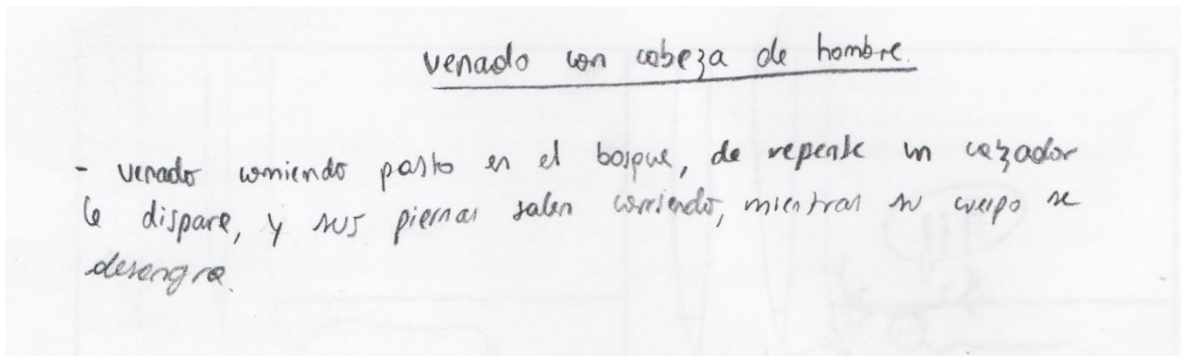 venado con cabeza de hombre.
- venado comiendo pasto en el bosque, de repente un cazador
le dispara, y sus piernas salen corriendo, mientras su cuerpo se
desangra.